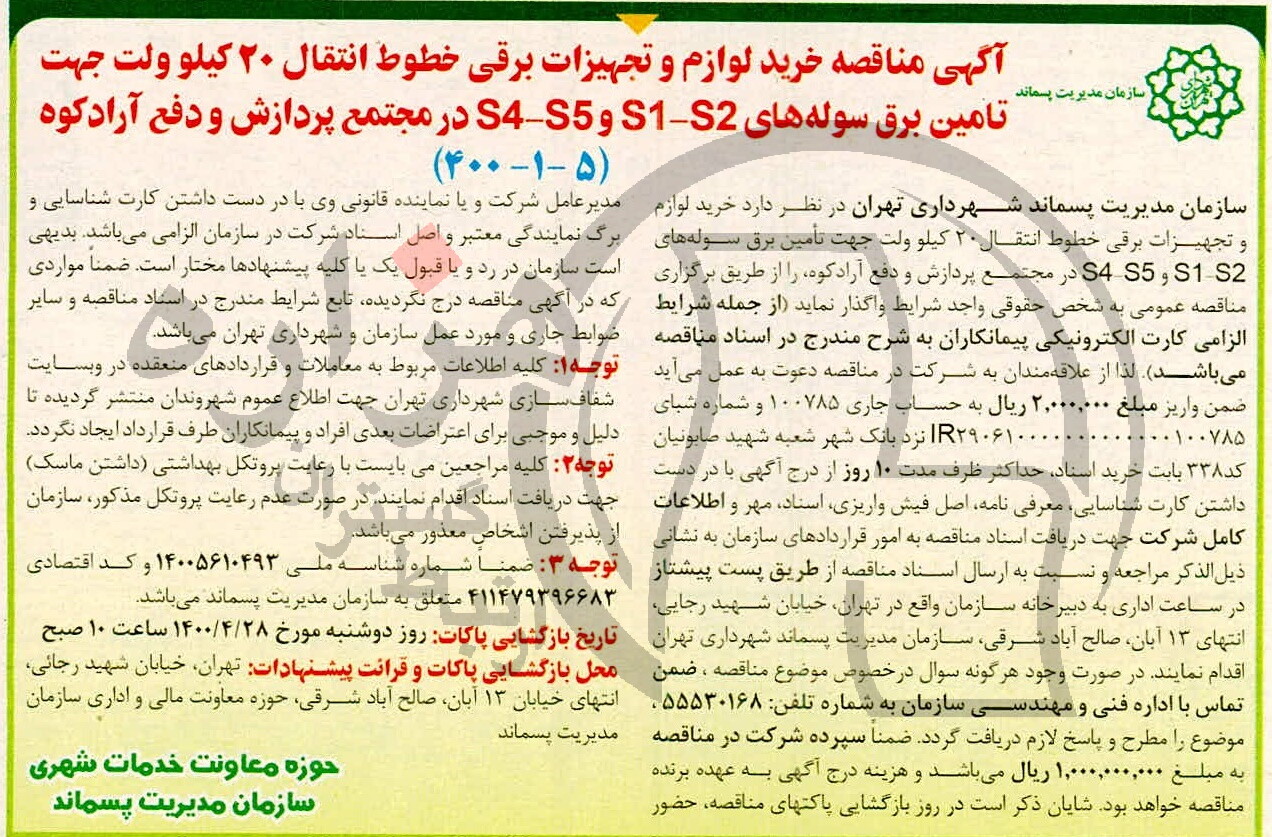 سازمان مدیریت پسماند
آگهی مناقصه خرید لوازم و تجهیزات برقی خطوط انتقال ۲۰ کیلو ولت جهت
تامین برق سوله‌های S1-S2 و S4-S5 در مجتمع پردازش و دفع آرادکوه
(۵ -۱- ۴۰۰)
سازمان مدیریت پسماند شهرداری تهران در نظر دارد خرید لوازم
و تجهیزات برقی خطوط انتقال۲۰ کیلو ولت جهت تأمین برق سوله‌های
S1-S2 و S4-S5 در مجتمع پردازش و دفع آرادکوه، را از طریق برگزاری
مناقصه عمومی به شخص حقوقی واجد شرایط واگذار نماید (از جمله شرایط
الزامی کارت الکترونیکی پیمانکاران به شرح مندرج در اسناد مناقصه
می‌باشد). لذا از علاقه‌مندان به شرکت در مناقصه دعوت به عمل می‌آید
ضمن واریز مبلغ ۲,۰۰۰,۰۰۰ ریال به حساب جاری ۱۰۰۷۸۵ و شماره شبای
IR۲۹۰۶۱۰۰۰۰۰۰۰۰۰۰۰۰۰۰۱۰۰۷۸۵ نزد بانک شهر شعبه شهید صابونیان
کد۳۳۸ بابت خرید اسناد، حداکثر ظرف مدت ۱۰ روز از درج آگهی با در دست
داشتن کارت شناسایی، معرفی نامه، اصل فیش واریزی، اسناد، مهر و اطلاعات
کامل شرکت جهت دریافت اسناد مناقصه به امور قراردادهای سازمان به نشانی
ذیل‌الذکر مراجعه و نسبت به ارسال اسناد مناقصه از طریق پست پیشتاز
در ساعت اداری به دبیرخانه سازمان واقع در تهران، خیابان شهید رجایی،
انتهای ۱۳ آبان، صالح آباد شرقی، سازمان مدیریت پسماند شهرداری تهران
اقدام نمایند. در صورت وجود هرگونه سوال درخصوص موضوع مناقصه ، ضمن
تماس با اداره فنی و مهندسی سازمان به شماره تلفن: ۵۵۵۳۰۱۶۸ ،
موضوع را مطرح و پاسخ لازم دریافت گردد. ضمناً سپرده شرکت در مناقصه
به مبلغ ۱,۰۰۰,۰۰۰,۰۰۰ ریال می‌باشد و هزینه درج آگهی به عهده برنده
مناقصه خواهد بود. شایان ذکر است در روز بازگشایی پاکتهای مناقصه، حضور
مدیرعامل شرکت و یا نماینده قانونی وی با در دست داشتن کارت شناسایی و
برگ نمایندگی معتبر و اصل اسناد شرکت در سازمان الزامی می‌باشد. بدیهی
است سازمان در رد و یا قبول یک یا کلیه پیشنهادها مختار است. ضمناً مواردی
که در آگهی مناقصه درج نگردیده، تابع شرایط مندرج در اسناد مناقصه و سایر
ضوابط جاری و مورد عمل سازمان و شهرداری تهران می‌باشد.
توجه۱: کلیه اطلاعات مربوط به معاملات و قراردادهای منعقده در وبسایت
شفاف‌سازی شهرداری تهران جهت اطلاع عموم شهروندان منتشر گردیده تا
دلیل و موجبی برای اعتراضات بعدی افراد و پیمانکاران طرف قرارداد ایجاد نگردد.
توجه۲: کلیه مراجعین می بایست با رعایت پروتکل بهداشتی (داشتن ماسک)
جهت دریافت اسناد اقدام نمایند. در صورت عدم رعایت پروتکل مذکور، سازمان
از پذیرفتن اشخاص معذور می‌باشد.
توجه ۳: ضمناً شماره شناسه ملی ۱۴۰۰۵۶۱۰۴۹۳ و کد اقتصادی
۴۱۱۴۷۹۳۹۶۶۸۳ متعلق به سازمان مدیریت پسماند می‌باشد.
تاریخ بازگشایی پاکات: روز دوشنبه مورخ ۱۴۰۰/۴/۲۸ ساعت ۱۰ صبح
محل بازگشایی پاکات و قرائت پیشنهادات: تهران، خیابان شهید رجائی،
انتهای خیابان ۱۳ آبان، صالح آباد شرقی، حوزه معاونت مالی و اداری سازمان
مدیریت پسماند
حوزه معاونت خدمات شهری
سازمان مدیریت پسماند
هزاره